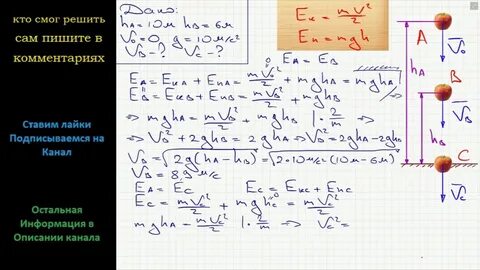 кто смог решить
сам пишите в
комментариях
Ставим лайки
Подписываемся на
Канал
Остальная
Информация в
Описании канала
Дано:
hA=10м hB=6м
V0=0 g=10м/с²
VB-? VC-?
Eк = mV²/2
Eп = mgh
EA = EB
EA = EкA + EпA = mV0²/2 + mghA = mghA
EB = EкB + EпB = mVB²/2 + mghB
⇒ mghA = mVB²/2 + mghB |·2/m ⇒
⇒ VB² + 2ghB = 2ghA ⇒ VB² = 2ghA - 2ghB
VB = √2g(hA-hB) = √2·10м/с²(10м-6м)
VB = 8,9м/с
EA = EC EC = EкC + EпC
EC = mVC²/2 + mghC = mVC²/2
0
mghA = mVC²/2 |·2/m ⇒ VC² =
A
V0
hA
B
VB
hB
C
VC